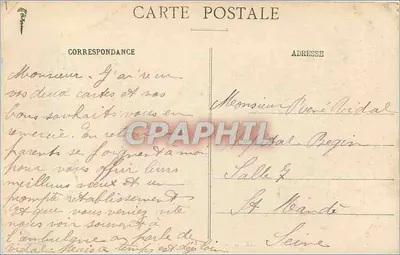 CARTE POSTALE
CORRESPONDANCE
ADRESSE
Monsieur. J'ai reçu
vos deux cartes et vos
bons souhaits vous en
remercie. En
parents se joignent à moi
pour vous offrir leurs
meilleurs vœux et un
prompt rétablissement
et que vous veniez vite
nous voir souvent à
l'ambulance on parle de
Vidal Mais temps est déjà loin
Monsieur René Vidal
Hôpital Begin
Salle 7
St Mandé
Seine
CPAPHIL